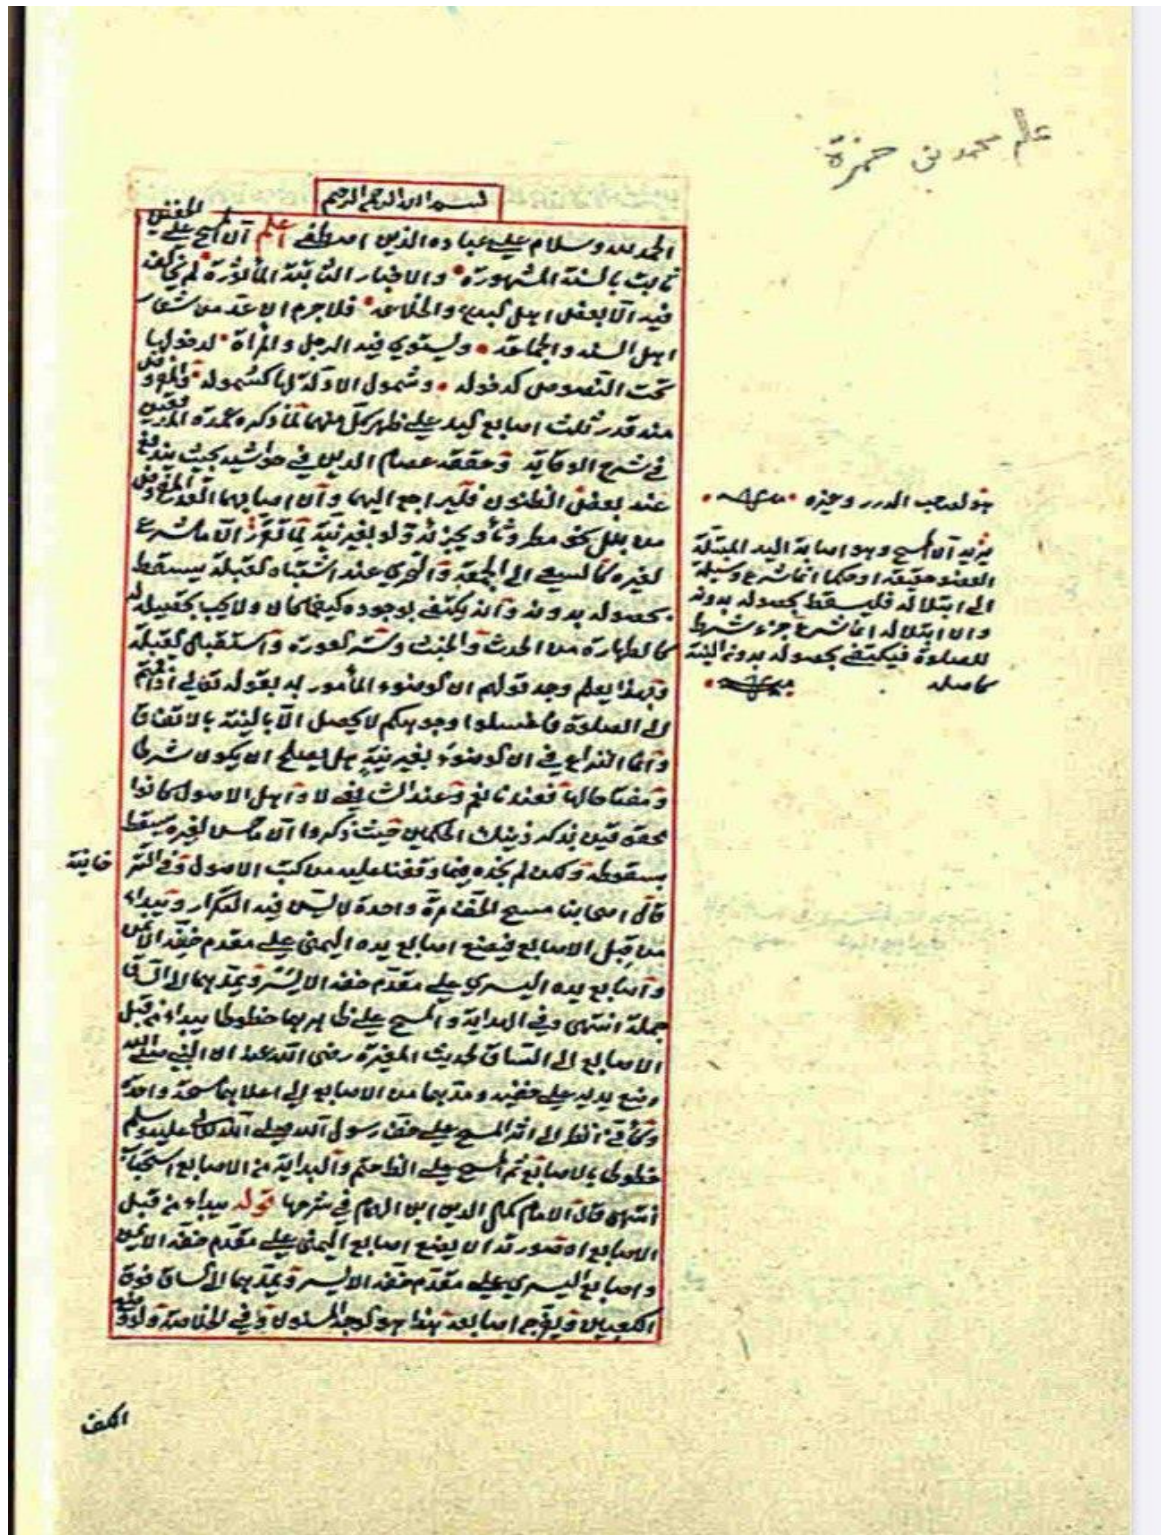 عالم محمد بن حمزة
بسم الله الرحمن الرحيم
الحمد لله وسلام على عباده الذين اصطفى اعلم ان المسح على الخفين
ثابت بالسنة المشهورة والاخبار الثابتة المأثورة لم يخالف
فيه الا بعض اهل البدع فلا جرم انه عد من شعار
اهل السنة والجماعة ويستوي فيه الرجل والمرأة لدخولها
تحت النصوص كدخوله وشمول الادلة لها كشموله والمفروض
منه قدر ثلث اصابع اليد على ظهر كل منهما لما ذكره عمدة
في شرح الوقاية وحققه عصام الدين في حواشيه بحيث يندفع
عند بعض الظنون فليراجع اليهما وان اصابهما القدر المفروض
من بلل نحو مطر ويجزئه ولو بغير نية لما تقرر ان ما شرع
لغيره كالسعي الى الجمعة والتحري عند اشتباه القبلة يسقط
بحصوله بدونه وانه يكتفى بوجوده كيفما كان ولا يجب تحصيله
كالطهارة من الحدث والخبث وستر العورة واستقبال القبلة
وبهذا يعلم وجه قولهم ان الوضوء المأمور به بقوله تعالى اذا قمتم
الى الصلوة فاغسلوا وجوهكم لا يحصل الا بالنية بالاتفاق
وانما النزاع في ان الوضوء بغير نية هل يصلح ان يكون شرطا
ومفتاحا لها فعندنا نعم وعند الشافعي لا واهل الاصول كانوا
ذينك الحكمين حيث ذكروا ان ما حسن لغيره يسقط
بسقوطه ولكن لم نجده فيما وقفنا عليه من كتب الاصول وفي
خانية
قال اصحابنا مسح الخف مرة واحدة لا يسن فيه التكرار ويبداء
من قبل الاصابع فيضع اصابع يده اليمنى على مقدم خفه الايمن
واصابع يده اليسرى على مقدم خفه الايسر ويمدهما الى الساق
جملة انتهى وفي الهداية والمسح على ظاهرهما خطوطا يبداء من قبل
الاصابع الى الساق لحديث المغيرة رضى الله عنه ان النبي صلى الله
وضع يديه على خفيه ومدهما من الاصابع الى اعلاهما مسحة واحدة
وكأني انظر الى اثر المسح على خف رسول الله صلى الله تعالى عليه وسلم
خطوطا بالاصابع ثم المسح على الظاهر حتم والبداية من الاصابع استحباب
انتهى قال الامام كمال الدين ابن الهمام في شرحها قوله يبداء من قبل
الاصابع صورته ان يضع اصابع اليمنى على مقدم خفه الايمن
واصابع اليسرى على مقدم خفه الايسر ويمدهما الى الساق فوق
الكعبين ويفرج اصابعه هذا هو الوجه المسنون وفي الخلاصة ولو وضع
الكف
هو صاحب الدرر وغيره منه
يريد ان المسح وهو اصابة اليد المبتلة
العضو حقيقة او حكما انما شرع وسيلة
الى ابتلاله فليسقط بحصوله بدونه
وان ابتلاله انما شرع جزء شرط
للصلوة فيكتفى بحصوله بدون النية
كاصله منه